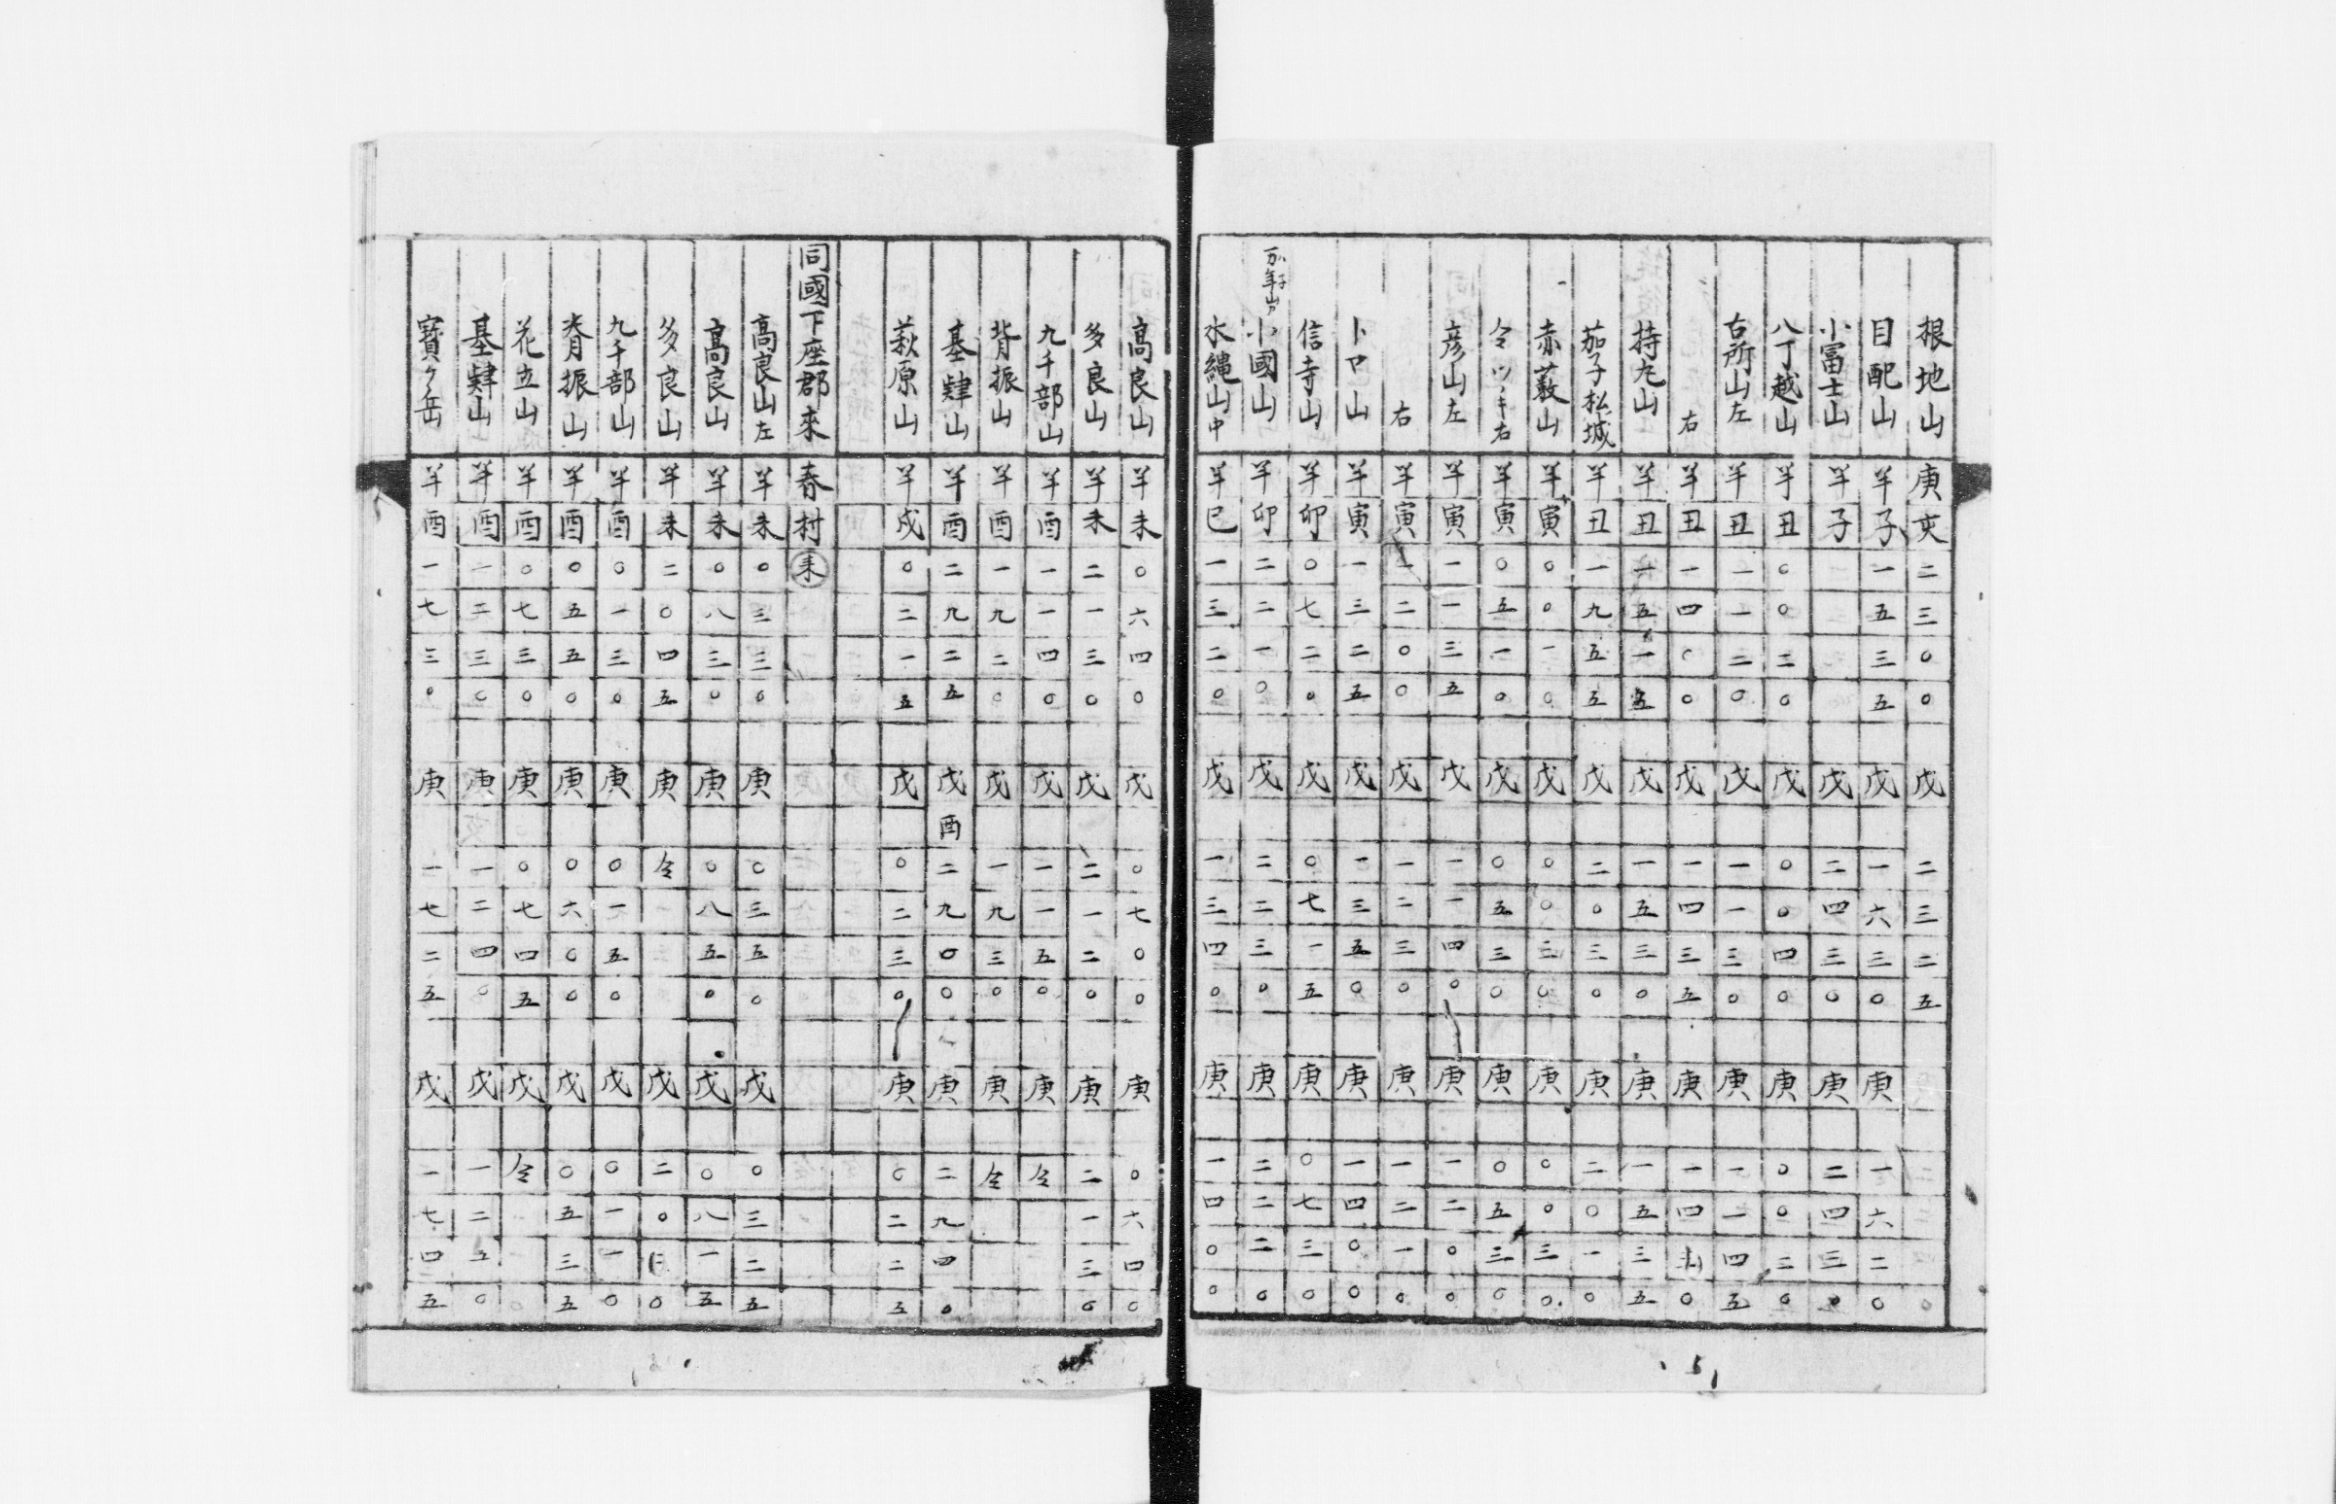 根地山 庚亥二三〇〇 戊 二三二五
目配山 羊子一五三五 戊 一六三〇 庚 一六二〇
小冨士山 羊子 戊 二四三〇 庚 二四三〇
八丁越山 羊丑〇〇二〇 戊 〇〇四〇 庚 〇〇二〇
古所山左 羊丑一一二〇 戊 一一三〇 庚 一一四五
右 羊丑一四〇〇 戊 一四三五 庚 一四〇
持丸山 羊丑一五一五 戊 一五三〇 庚 一五三五
茄子松城 羊丑一九五五 戊 二〇三〇 庚 二〇一〇
赤薮山 羊寅〇〇一〇 戊 〇〇三〇 庚 〇〇三〇
令ツヽキ右 羊寅〇五一〇 戊 〇五三〇 庚 〇五三〇
彦山左 羊寅一一三五 戊 一一四〇 庚 一二〇〇
右 羊寅一二〇〇 戊 一二三〇 庚 一二一〇
卜ロ山 羊寅一三二五 戊 一三五〇 庚 一四〇〇
信寺山 羊卯〇七二〇 戊 〇七一五 庚 〇七三〇
小國山 羊卯二二一〇 戊 二二三〇 庚 二二二〇
水縄山中 羊巳一三二〇 戊 一三四〇 庚 一四〇〇
高良山 羊未〇六四〇 戊 〇七〇〇 庚 〇六四〇
多良山 羊未二一三〇 戊 二一二〇 庚 二一三〇
九千部山 羊酉一一四〇 戊 一一五〇 庚 仝
背振山 羊酉一九二〇 戊 一九三〇 庚 仝
基肄山 羊酉二九二五 戊酉二九〇〇 庚 二九四〇
萩原山 羊戌〇二一五 戊 〇二三〇 庚 〇二二五
同國下座郡來春村 未
高良山左 羊未〇三三〇 庚 〇三五〇 戊 〇三二五
高良山 羊未〇八三〇 庚 〇八五〇 戊 〇八一五
多良山 羊未二〇四五 庚 仝 戊 二〇〇
九千部山 羊酉〇一三〇 庚 〇一五〇 戊 〇一一〇
脊振山 羊酉〇五五〇 庚 〇六〇〇 戊 〇五三五
花立山 羊酉〇七三〇 庚 〇七四五 戊 仝
基肄山 羊酉一二三〇 庚 一二四〇 戊 一二五〇
寳ケ岳 羊酉一七三〇 庚 一七二五 戊 一七四五